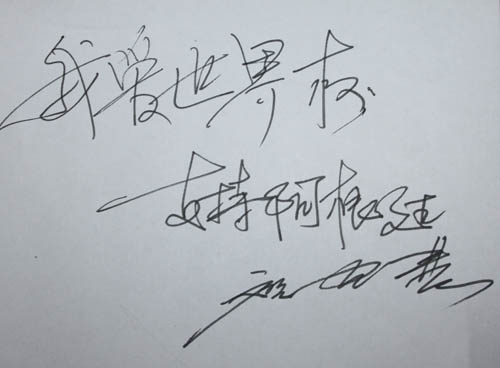 我爱世界杯
支持阿根廷